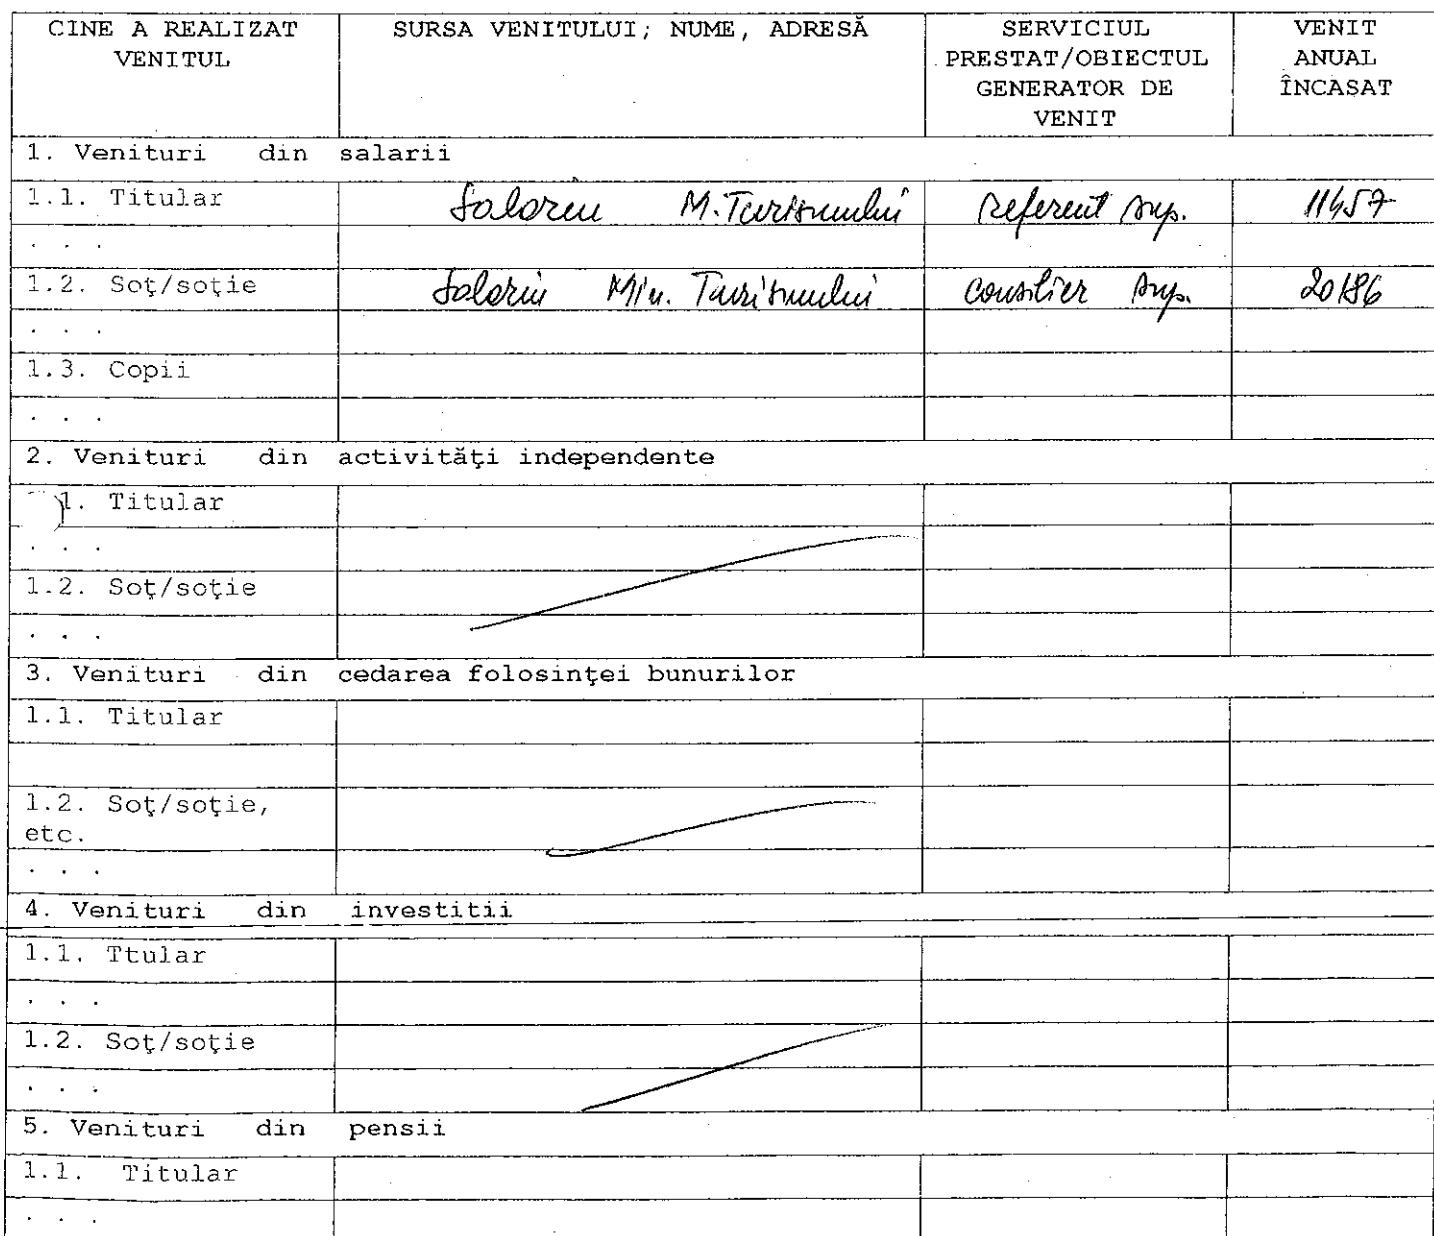 CINE A REALIZAT VENITUL SURSA VENITULUI; NUME, ADRESĂ SERVICIUL PRESTAT/OBIECTUL GENERATOR DE VENIT VENIT ANUAL ÎNCASAT
1. Venituri din salarii
1.1. Titular Salariu M. Turismului referent sup. 11457
. . .
1.2. Soţ/soţie Salariu Min. Turismului consilier sup. 20186
. . .
1.3. Copii
. . .
2. Venituri din activităţi independente
1. Titular
. . .
1.2. Soţ/soţie
. . .
3. Venituri din cedarea folosinţei bunurilor
1.1. Titular
1.2. Soţ/soţie,
etc.
. . .
4. Venituri din investitii
1.1. Ttular
. . .
1.2. Soţ/soţie
. . .
5. Venituri din pensii
1.1. Titular
. . .